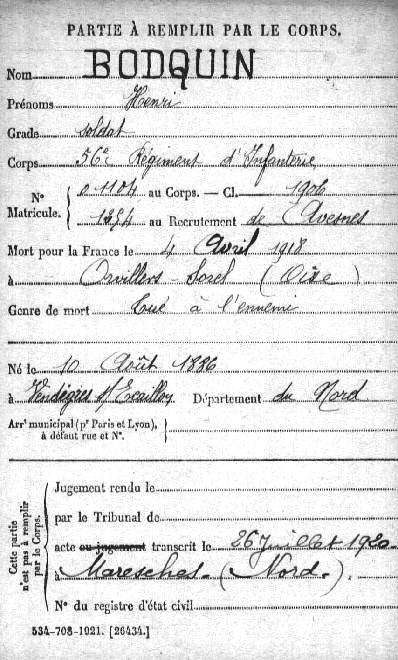 PARTIE À REMPLIR PAR LE CORPS.
Nom BODQUIN
Prénoms Henri
Grade soldat
Corps 56e Régiment d'Infanterie
N° Matricule. { 01104 au Corps. — Cl. 1906
1254 au Recrutement de Avesnes
Mort pour la France le 4 Avril 1918
à Orvillers-Sorel (Oise)
Genre de mort Tué à l'ennemi
Né le 10 Août 1886
à Vendégies s/ Ecaillon Département du Nord
Arrt municipal (pr Paris et Lyon),
à défaut rue et N°.
Cette partie n'est pas à remplir par le Corps.
Jugement rendu le
par le Tribunal de
acte ou jugement transcrit le 26 Juillet 1920
à Maresches. (Nord.)
N° du registre d'état civil
534-708-1921. [26434.]